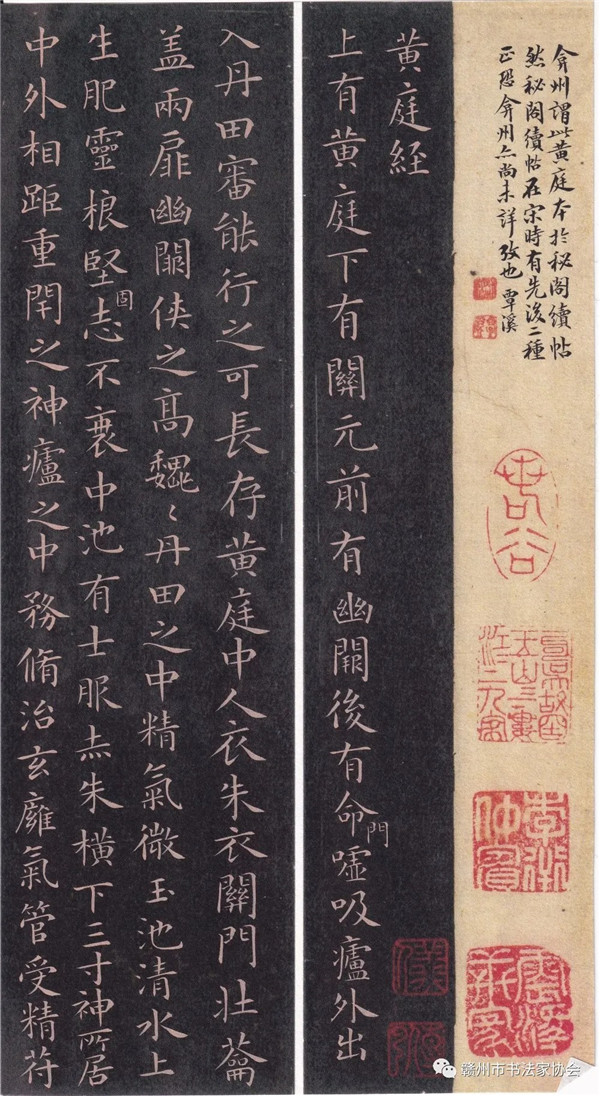 弇州謂此黄庭本於秘閣續帖
然秘閣續帖在宋時有先後二種
正恐弇州亦尚未詳攷也 覃溪
黄庭経
上有黄庭下有關元前有幽闕後有命門噓吸廬外出
入丹田審能行之可長存黄庭中人衣朱衣關門壯蘥
盖兩扉幽闕俠之髙魏〻丹田之中精氣微玉池清水上
生肥靈根堅固志不衰中池有士服赤朱横下三寸神所居
中外相距重閇之神廬之中務脩治玄廱氣管受精苻
赣州市书法家协会